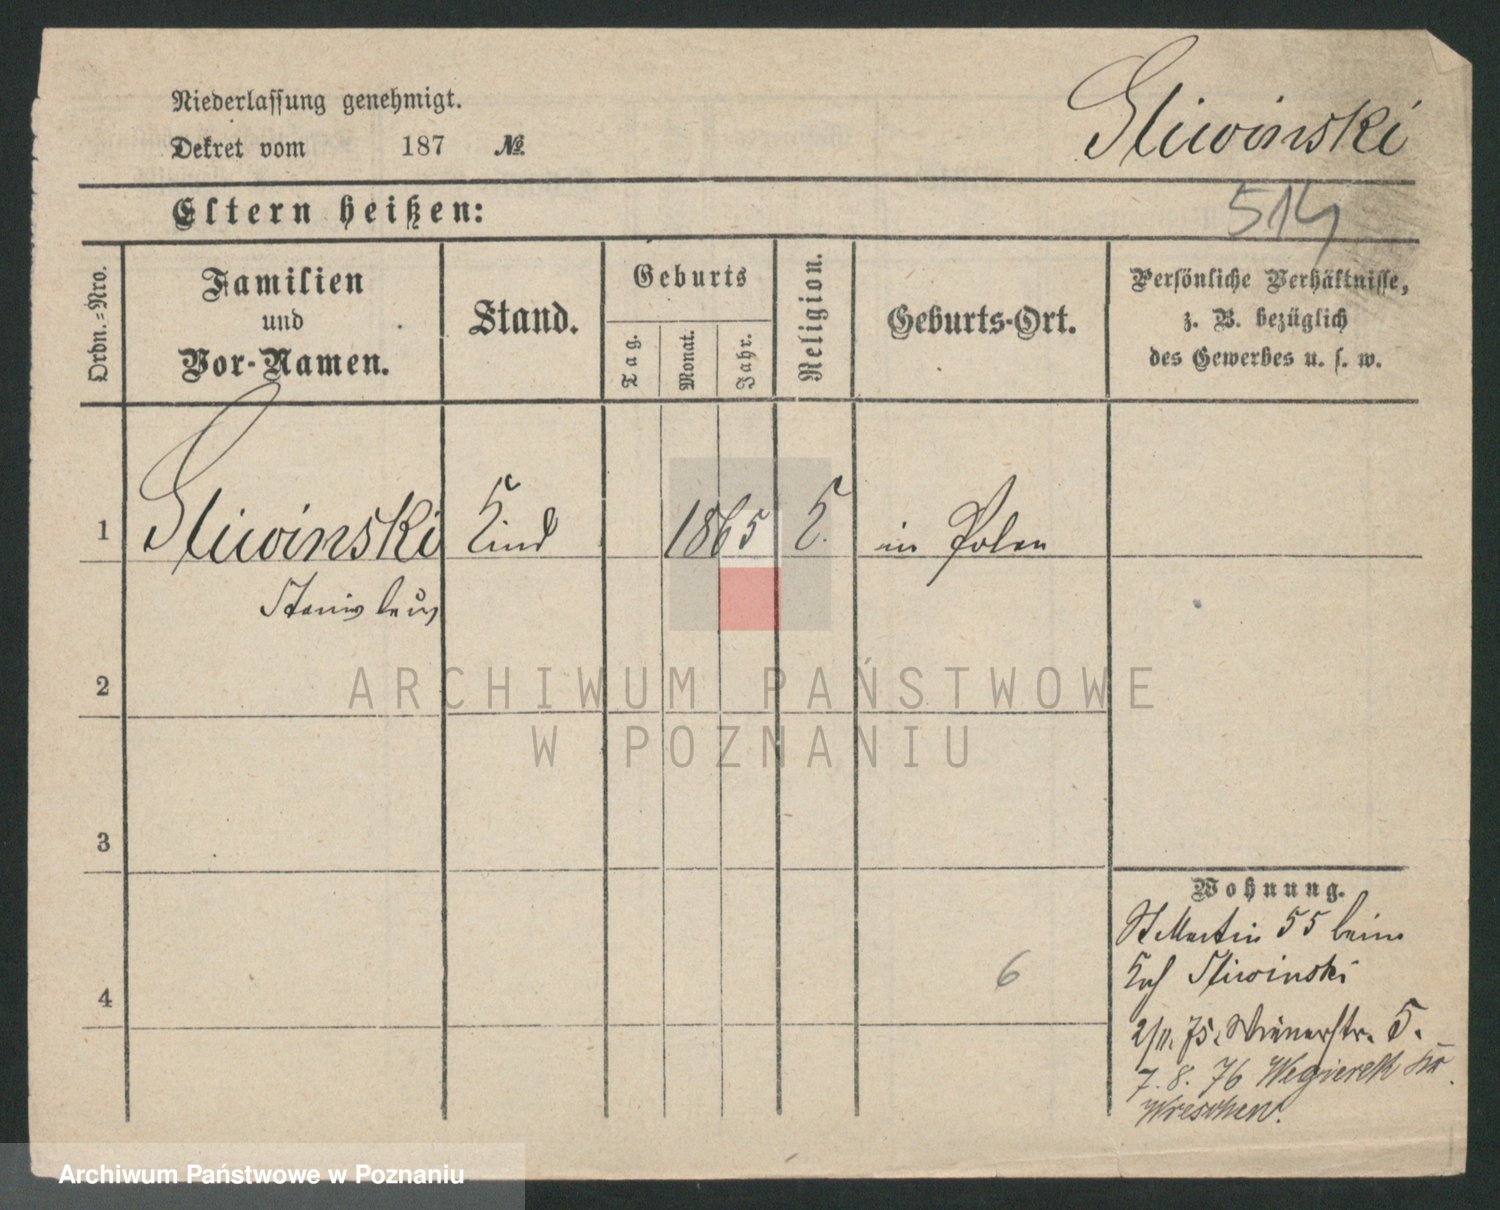 Niederlassung genehmigt.
Dekret vom 187 №
Sliwinski
514
Eltern heißen:
Ordn.-Nro.
Familien
und
Vor-Namen.
Stand.
Geburts
Tag.
Monat.
Jahr.
Religion.
Geburts-Ort.
Persönliche Verhältnisse,
z. B. bezüglich
des Gewerbes u. s. w.
1 Sliwinski Kind 1865 K. in Polen
Stanislaus
2
ARCHIWUM PAŃSTWOWE
W POZNANIU
3
Wohnung.
St Martin 55 beim
Sliwinski
6
4
2/11. 75. Wienerstr. 5.
7. 8. 76 Wegierek
Wreschen.
Archiwum Państwowe w Poznaniu